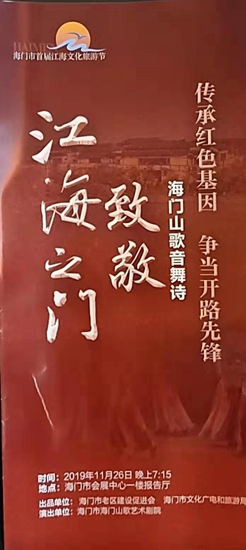 HAIM
海门市首届江海文化旅游节
传承红色基因 争当开路先锋
海门山歌音舞诗
致敬
江海之门
时间：2019年11月26日 晚上7:15
地点：海门市会展中心一楼报告厅
出品单位：海门市老区建设促进会 海门市文化广电和旅游局
演出单位：海门市海门山歌艺术剧院